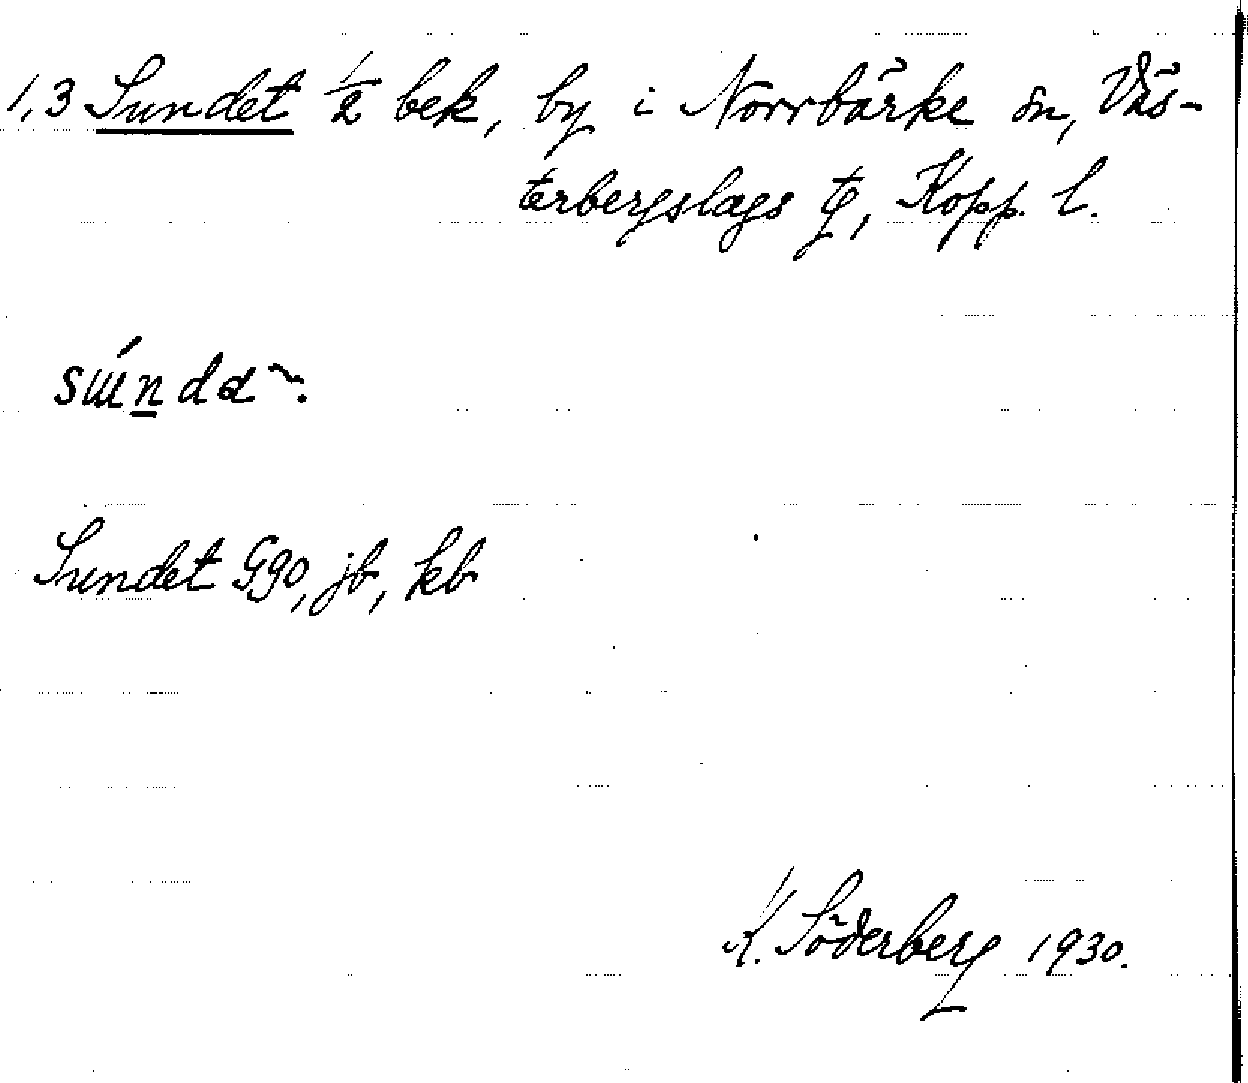 1,3 Sundet ½ bek, by i Norrbärke sn, Väs-
terbergslags tg, Kopp. l.
Sundet G90, jb, kb
K. Söderberg 1930.